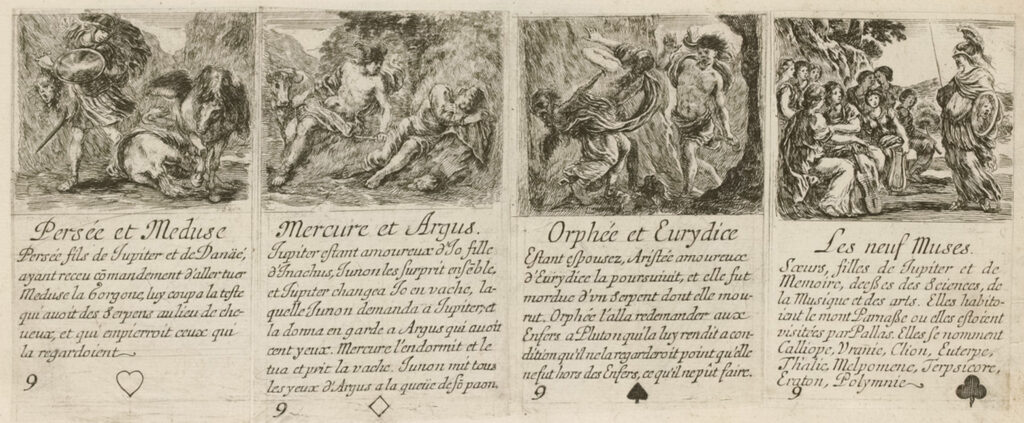 Persée et Meduse
Persée fils de Iupiter et de Danáé,
ayant receu cõmandement d'aller tuer
Meduse la Gorgone, luy coupa la teste
qui auoit des Serpens au lieu de che-
ueux, et qui empierroit ceux qui
la regardoient
9
Mercure et Argus.
Iupiter estant amoureux d'Io fille
d'Inachus, Iunon les surprit ensẽble,
et Iupiter changea Io en vache, la-
quelle Iunon demanda a Iupiter, et
la donna en garde a Argus qui auoit
cent yeux. Mercure l'endormit et le
tua et prit la vache. Iunon mit tous
les yeux d'Argus a la queüe de sõ paon.
9
Orphée et Eurydice
Estant espousez, Aristée amoureux
d'Eurydice la poursuiuit, et elle fut
mordue d'vn Serpent dont elle mou-
rut. Orphée l'alla redemander aux
Enfers a Pluton qui la luy rendit a con-
dition qu'il ne la regarderoit point qu'elle
ne fut hors des Enfers, ce qu'il ne pût faire.
9
Les neuf Muses.
Sœurs, filles de Iupiter et de
Memoire, deeſses des Sciences, de
la Musique et des arts. Elles habito-
ient le mont Parnaſse ou elles estoient
visitées par Pallas. Elles se nomment
Calliope, Vranie, Clion, Euterpe,
Thalie, Melpomene, Terpsicore,
Eraton, Polymnie
9